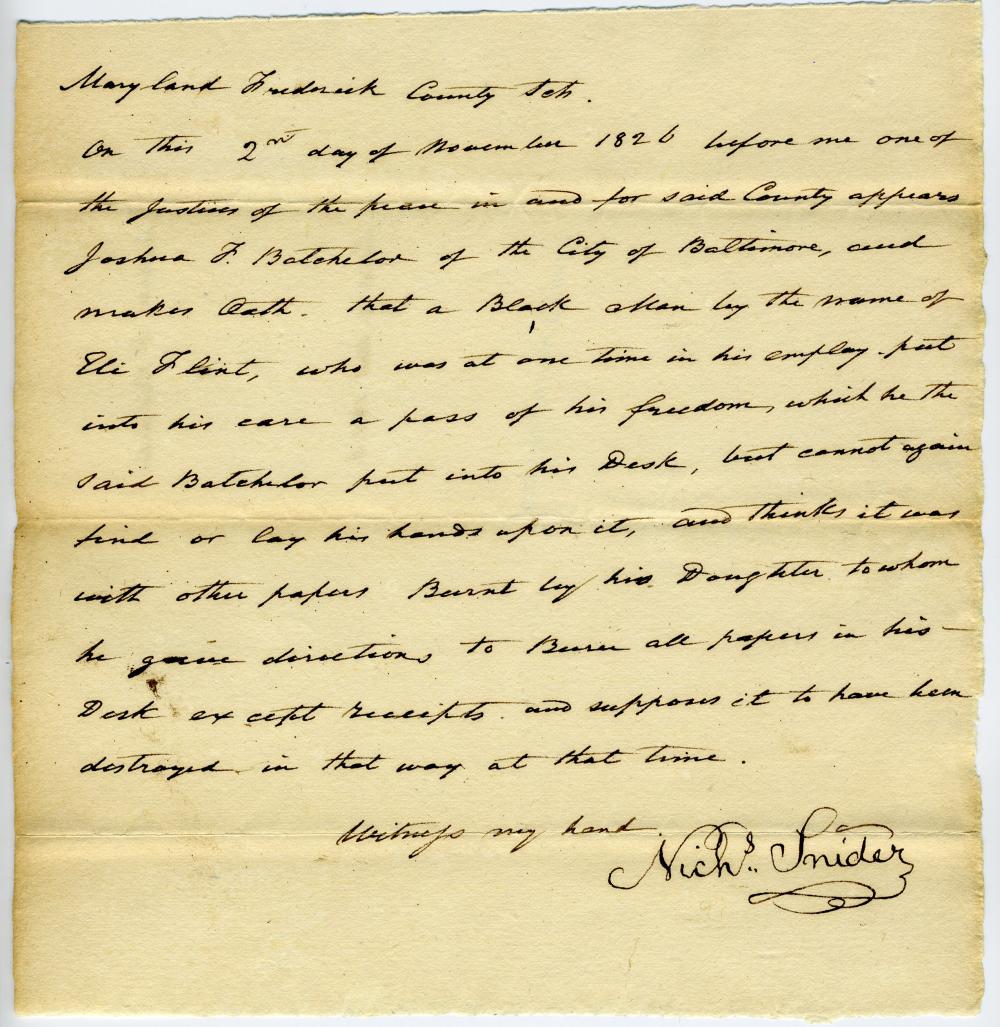 Maryland Frederick County Sct.
On this 2nd day of November 1826 before me one of
the Justices of the peace in and for said County appears
Joshua F. Batchelor of the City of Baltimore, and
makes Oath. that a Black Man by the name of
Eli Flint, who was at one time in his employ put
into his care a pass of his freedom, which he the
said Batchelor put into his Desk, but cannot again
find or lay his hands upon it, and thinks it was
with other papers Burnt by his Daughter to whom
he gave directions to Burn all papers in his
Desk except receipts. and supposes it to have been
destroyed in that way at that time.
Witness my hand
Nichs. Snider